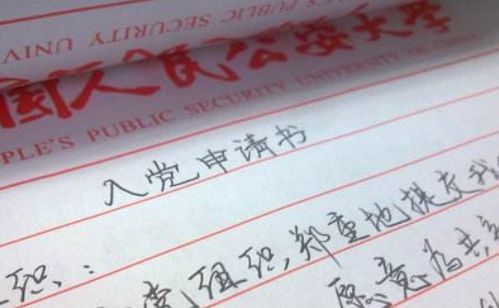 PEOPLE'S PUBLIC SECURITY UNIV
国人民公安大学
PLE'S PUBLIC SECURITY UNIVERSITY OF CHINA
入党申请书
组织：
党组织，郑重地提交我
愿意为共